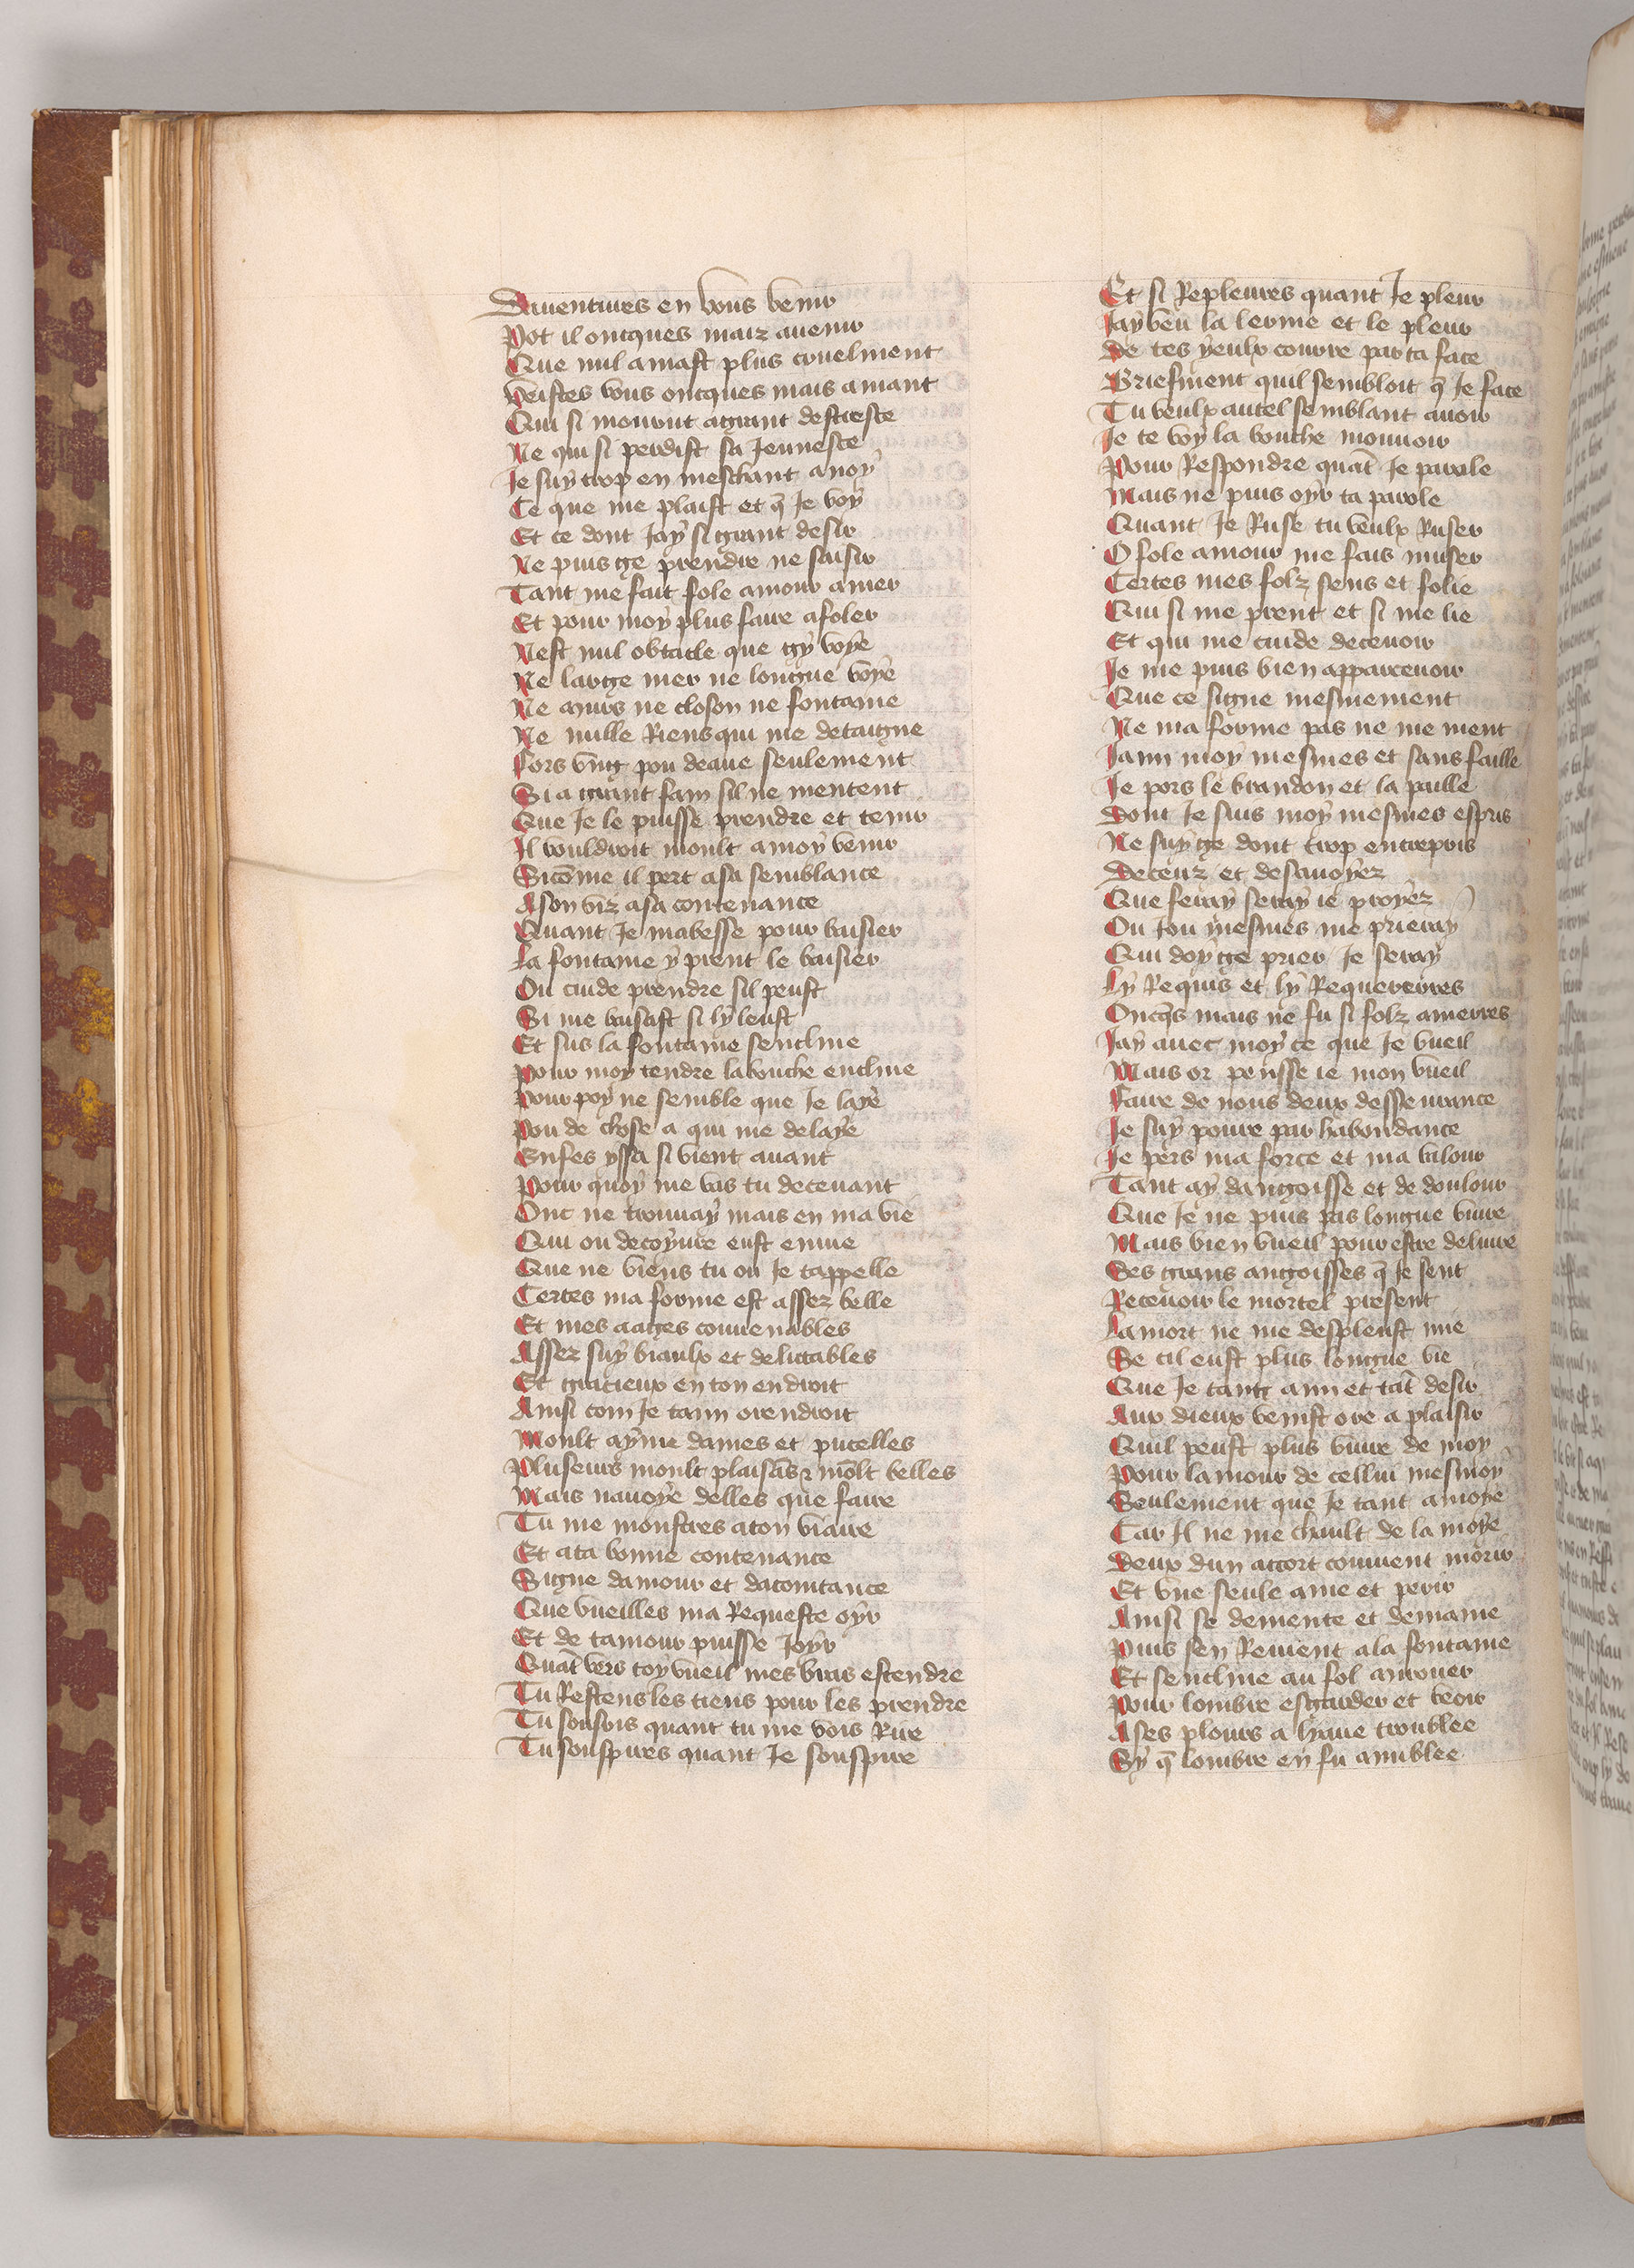 Dauentures en vous venir
Pot il oncques maiz auenir
Que nul amast plus cruelment
Veistes vous oncques mais amant
Qui si mourut agrant destresce
Ne qui si perdist sa Jeunesce
Je suy trop en meschant anoy
Ce que me plaist et q̄ Je voy
Et ce dont Jay si grant desir
Ne puis ge prendre ne saisir
Tant me fait fole amour amer
Et pour moy plus faire afoler
Nest nul obtacle que gy voye
Ne large mer ne longue voye
Ne murs ne closon ne fontaine
Ne nulle Riens qui me detaigne
Fors vng pou deaue seulement
Si a grant fain sil ne mentent
Que Je le puisse prendre et tenir
Il vouldroit moult amoy venir
Sicōme il pert asa semblance
Ason viz asa contenance
Quant Je mabesse pour baisier
La fontaine y prent le baisier
Ou cuide prendre sil peust
Si me baisast si ly leust
Et sus la fontaine sencline
Pour moy tendre labouche encline
Pour poy ne semble que Je laye
Pou de chose a qui me delaye
Enfes yssa si vient auant
Pour quoy me vas tu deceuant
Onc ne trouuay mais en ma vie
Qui ou decoyure eust enuie
Que ne viens tu ou Je tappelle
Certes ma forme est assez belle
Et mes aages conuenables
Assez suy biaulx et delictables
Et gracieux en ton endroit
Ainsi com Je taim orendroit
Moult ayme dames et pucelles
Pluseurs moult plaisās ⁊ mōlt belles
Mais nauoye delles que faire
Tu me monstres aton viaire
Et ata bonne contenance
Signe damour et dacointance
Que vueilles ma Requeste oyr
Et de tamour puisse Joyr
Quāt vers toy vueil mes bras estendre
Tu Restens les tiens pour les prendre
Tu sousris quant tu me vois Rire
Tu souspires quant Je souspire
Et si Repleures quant Je pleur
Jay veu la lerme et le pleur
De tes yeulx courre par ta face
Briefment quil sembloit q̄ Je face
Tu veulx autel semblant auoir
Je te voy la bouche mouuoir
Pour Respondre quāt Je parole
Mais ne puis oyr ta parole
Quant Je Ruse tu veulx Ruser
O fole amour me fais muser
Certes mes folz sens et folie
Qui si me prent et si me lie
Et qui me cuide deceuoir
Je me puis bien apparceuoir
Que ce signe mesmement
Ne ma forme pas ne me ment
Jaim moy mesmes et sans faille
Je pors le brandon et la paille
Dont Je suis moy mesmes espris
Ne suy ge dont trop entrepris
Deceuz et desauoyez
Que feray seray ie proyez
Ou Jou mesmes me prieray
Qui doy ge prier Je seray
Ly Requis et ly Requereires
Oncq̄s mais ne fu si folz amerres
Jay auec moy ce que Je vueil
Mais or pensse ie mon vueil
Faire de nous deux desseurance
Je suy poure par habondance
Je pers ma force et ma valour
Tant ay dangoisse et de doulour
Que Je ne puis pas longue viure
Mais bien vueil pour estre deliure
Des grans angoisses q̄ Je sent
Receuoir le mortel present
La mort ne me despleust mie
Se cil eust plus longue vie
Que Je tant aim et tāt desir
Aux dieux venist ore a plaisir
Quil peust plus viure de moy
Pour lamour de cellui mesmoy
Seulement que Je tant amoye
Car Il ne me chault de la moye
Deux dun accort conuient morir
Et vne seule ame et perir
Ainsi se demente et demaine
Puis sen Reuient ala fontaine
Et sencline au fol amouer
Pour lombre esgarder et veoir
Ases plours a lyaue troublee
Sy q̄ lombre en fu anublee